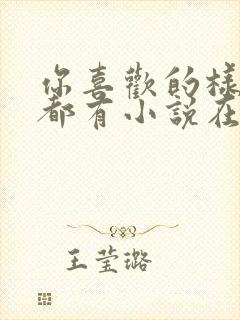 你喜歡的樣
都有小說在
王莹璐